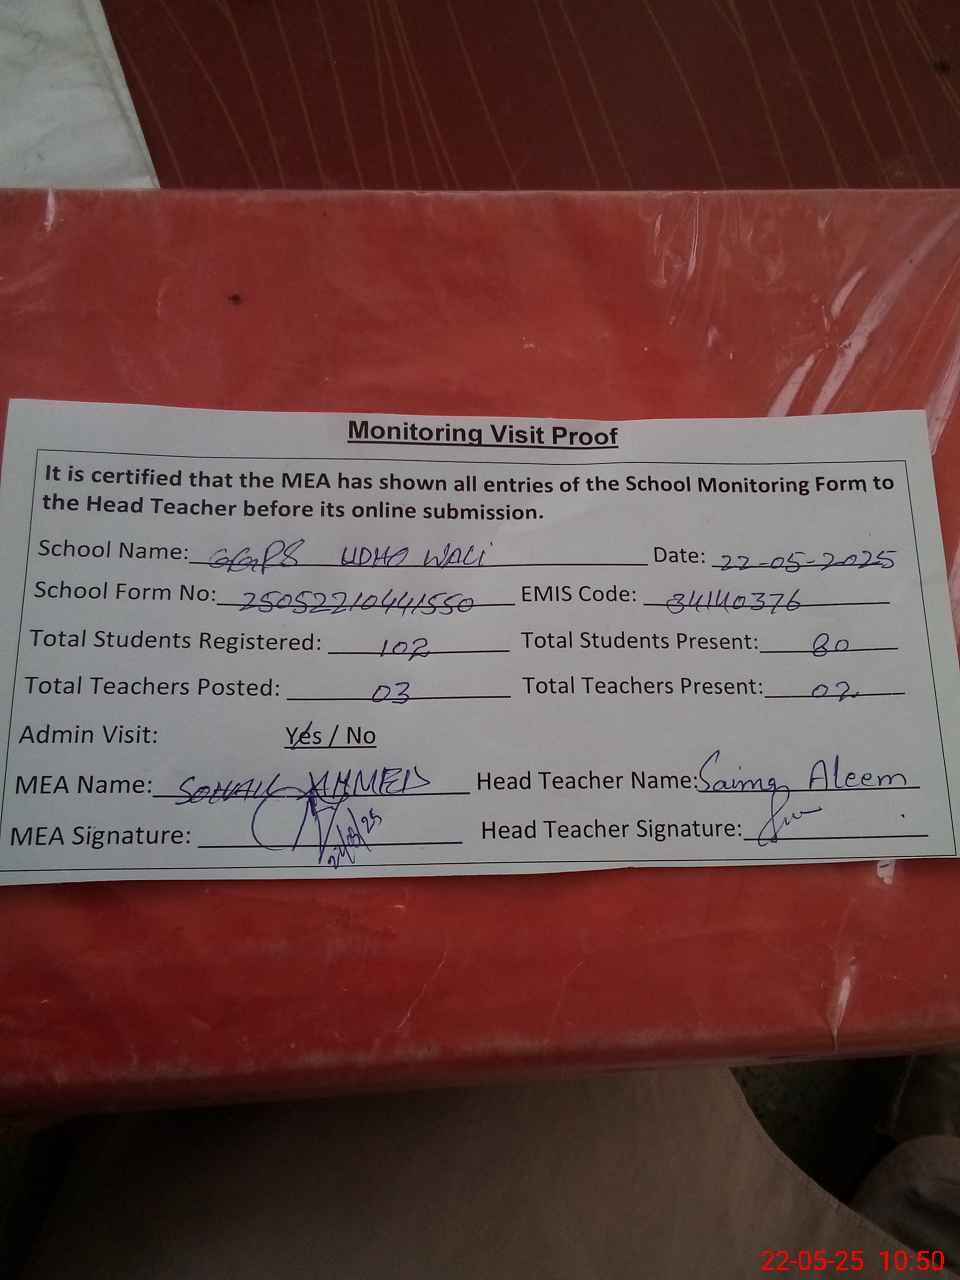 Monitoring Visit Proof
It is certified that the MEA has shown all entries of the School Monitoring Form to
the Head Teacher before its online submission.
School Name: GGPS UDHO WALI Date: 22-05-2025
School Form No: 25052210441550 EMIS Code: 34140376
Total Students Registered: 102 Total Students Present: 80
Total Teachers Posted: 03 Total Teachers Present: 02
Admin Visit: Yes / No
MEA Name: SOHAIL AHMED Head Teacher Name: Saima Aleem
MEA Signature: 22/05/25 Head Teacher Signature:
22-05-25 10:50